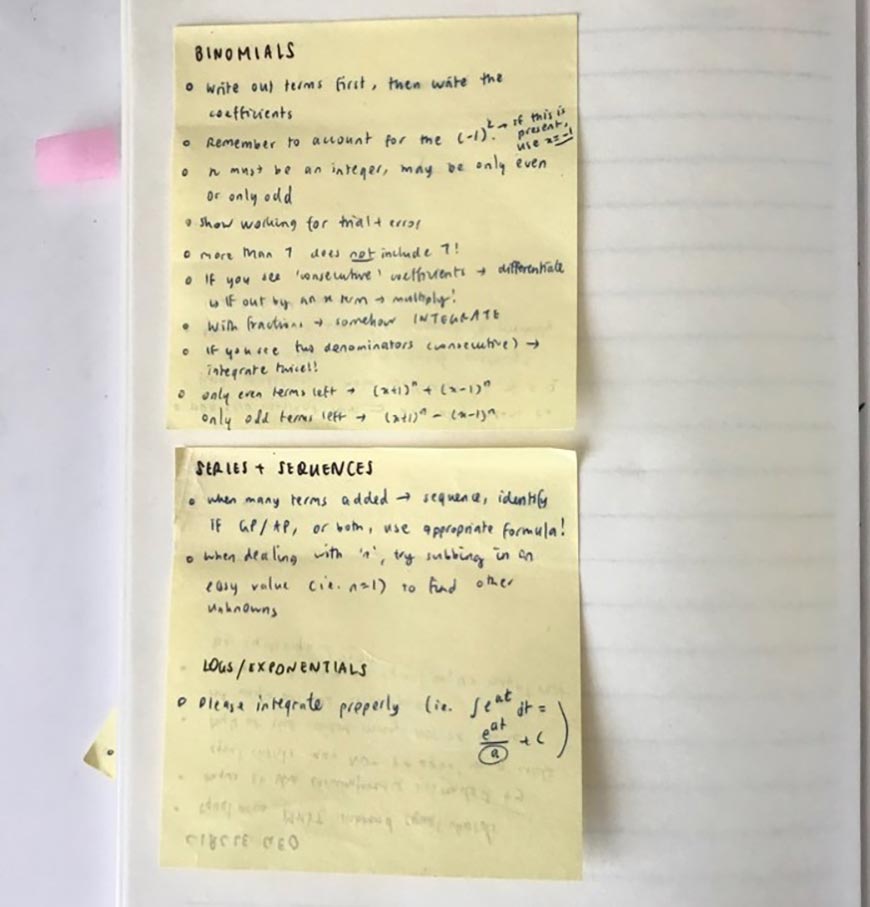 BINOMIALS
• write out terms first, then write the
coefficients
• Remember to account for the (-1)². → if this is
present,
use x=-1
• n must be an integer, may be only even
or only odd
• show working for trial + error
• more than 7 does not include 7!
• If you see 'consecutive' coefficients → differentiate
↳ if out by an x term → multiply!
• with fractions → somehow INTEGRATE
• if you see two denominators (consecutive) →
integrate twice!!
• only even terms left → (x+1)ⁿ + (x-1)ⁿ
only odd terms left → (x+1)ⁿ - (x-1)ⁿ
SERIES + SEQUENCES
• when many terms added → sequence, identify
if GP/AP, or both, use appropriate formula!
• when dealing with 'n', try subbing in an
easy value (i.e. n=1) to find other
unknowns
LOGS/EXPONENTIALS
• Please integrate properly (ie. ∫e^at dt =
e^at/a + C)
CIRCLE GEO